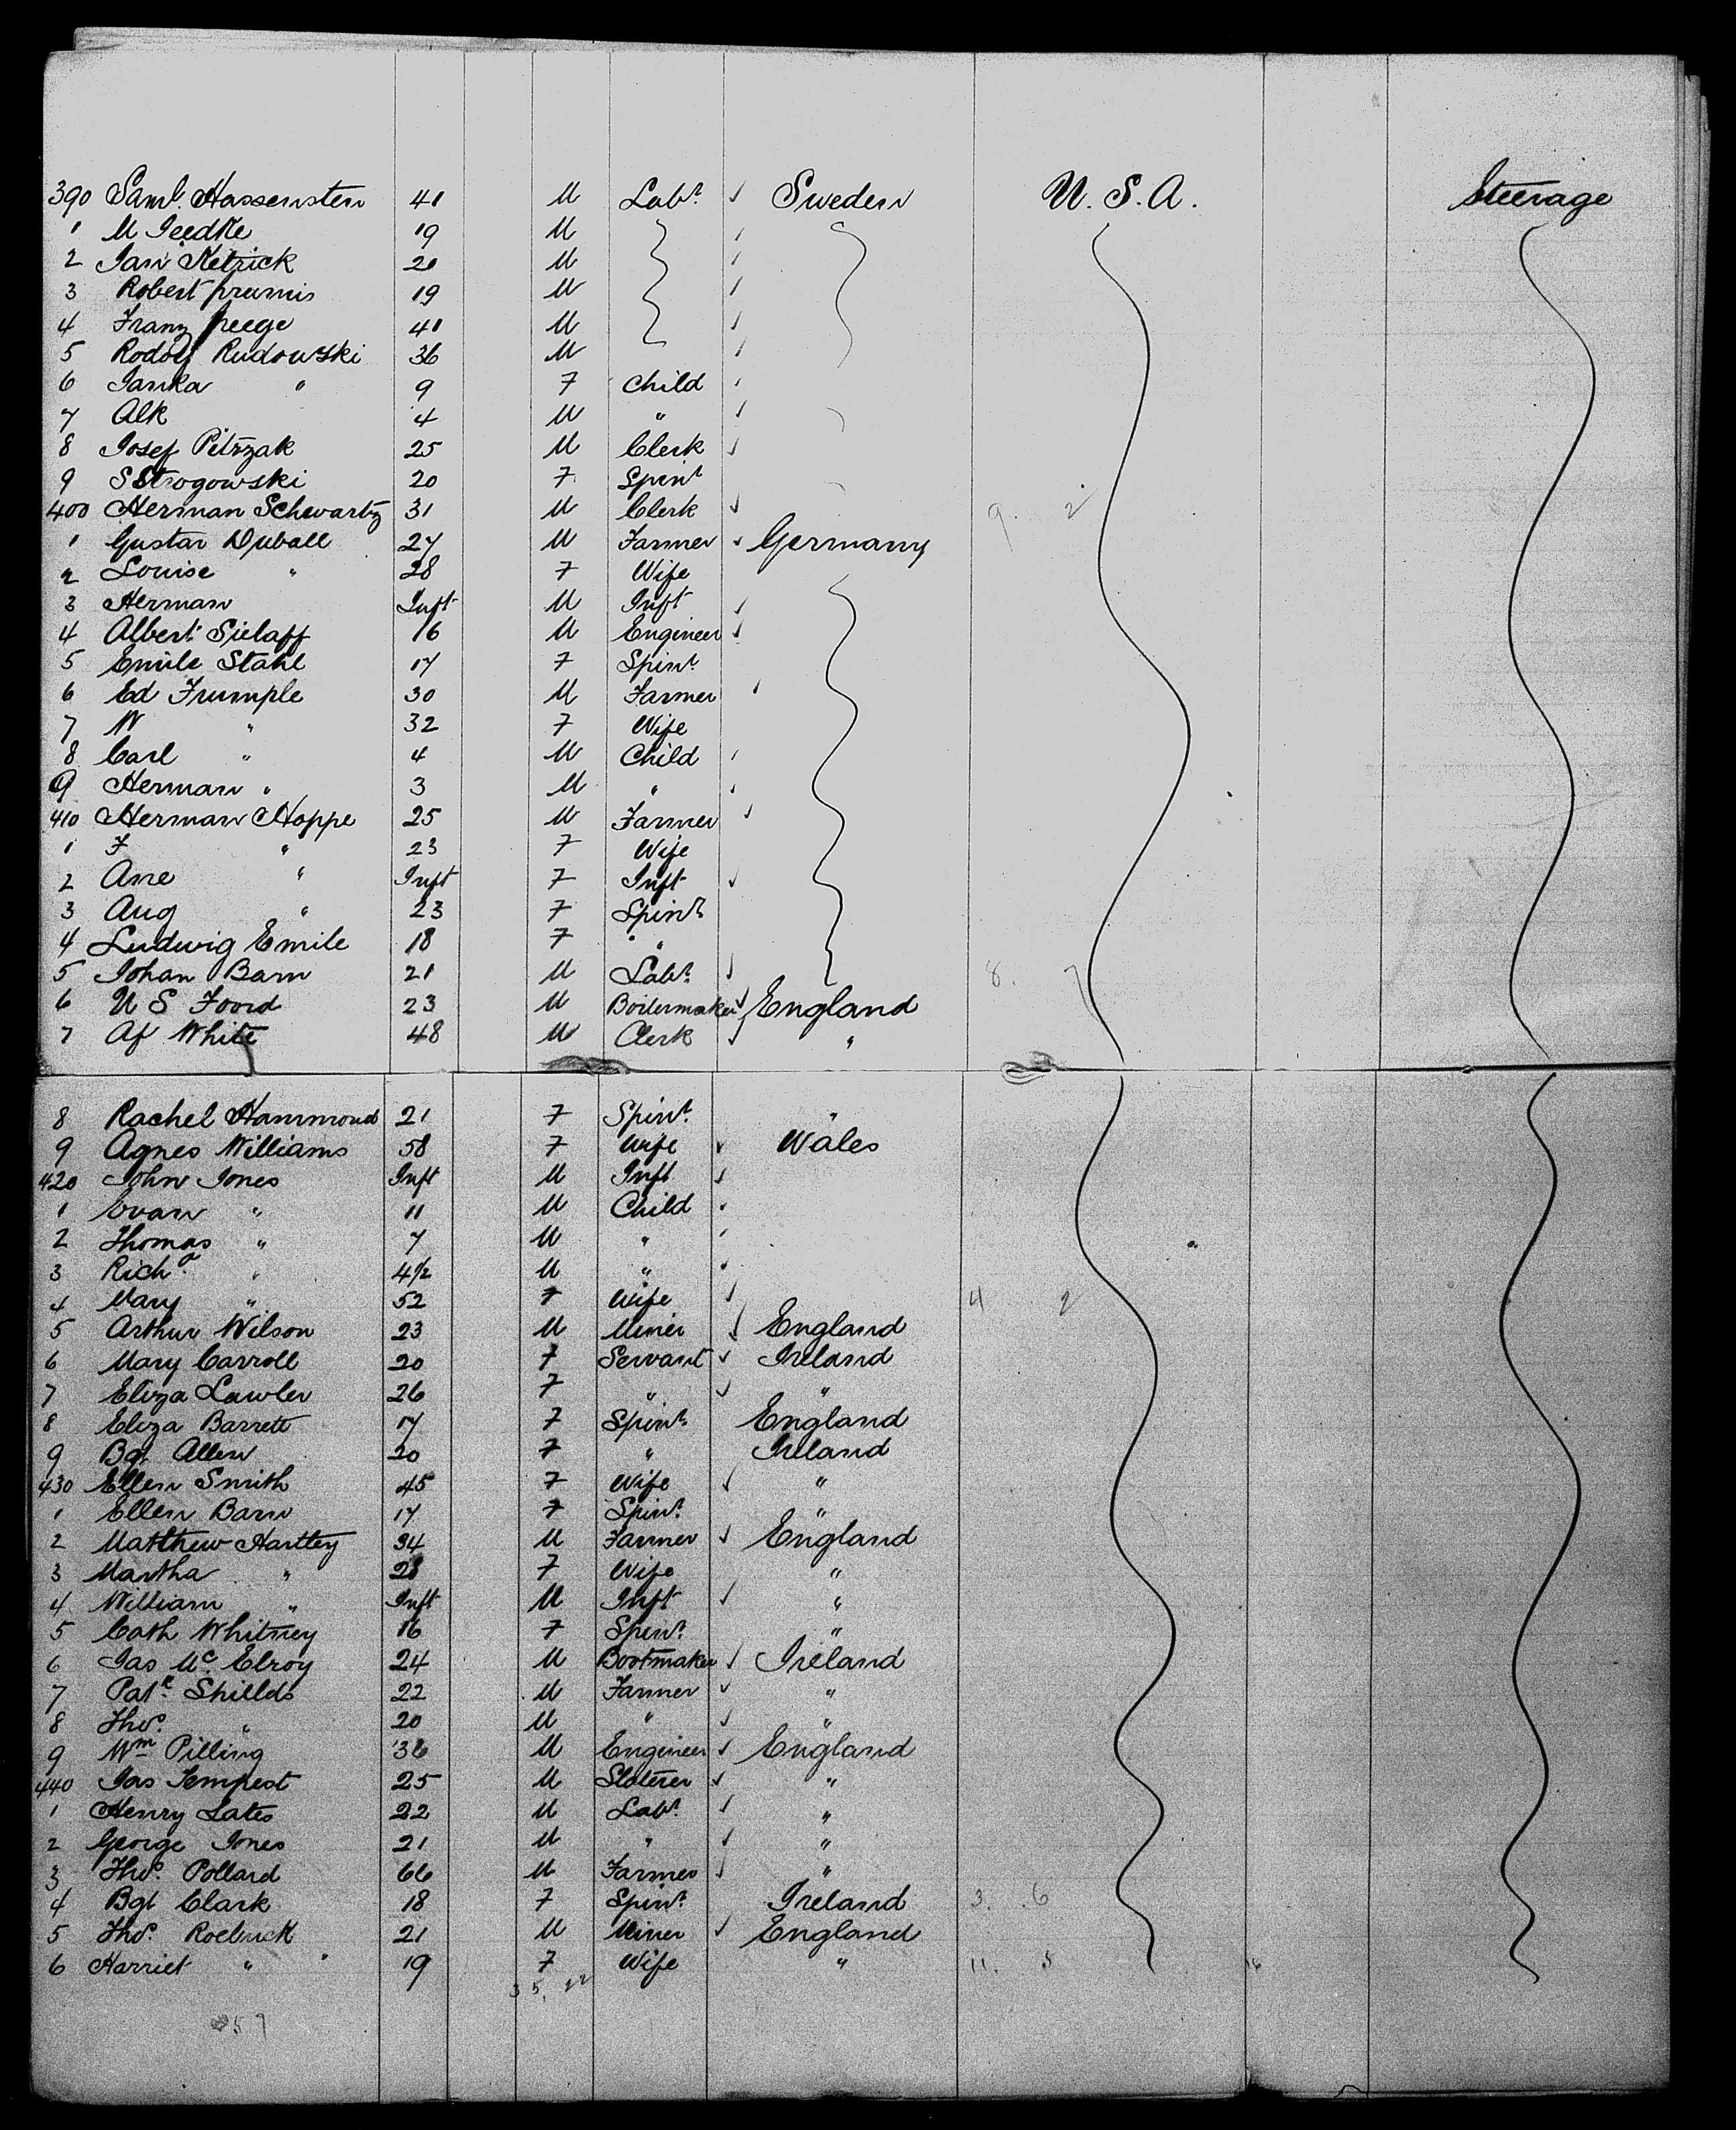 390 Saml. Hassensten 41 M Labr. Sweden U. S. A. Steerage
1 M Jeedke 19 M
2 Jan Ketrick 20 M
3 Robert 19 M
4 Franz 41 M
5 Rodolf Rudowski 36 M
6 Janka " 9 F Child
7 Alk 4 M "
8 Josef Pitrzak 25 M Clerk
9 S Strogowski 20 F Spinr
400 Herman Schwartz 31 M Clerk 9. 2
1 Gustav Duball 27 M Farmer Germany
2 Louise " 28 F Wife
3 Herman Inft M Inft
4 Albert Sielaff 16 M Engineer
5 Emile Stahl 17 F Spinr.
6 Ed Frumple 30 M Farmer
7 W " 32 F Wife
8 Carl " 4 M Child
9 Herman " 3 M "
410 Herman Hoppe 25 M Farmer
1 F " 23 F Wife
2 Ane " Inft F Inft
3 Aug " 23 F Spinr
4 Ludwig Emile 18 F "
5 Johan Barn 21 M Labr. 8. 7
6 N S Foord 23 M Boilermaker England
7 Af White 48 M Clerk "
8 Rachel Hammond 21 F Spinr. "
9 Agnes Williams 58 F Wife Wales
420 John Jones Inft M Inft
1 Evan " 11 M Child
2 Thomas " 7 M "
3 Richd. " 4½ M "
4 Mary " 52 F Wife 4 2
5 Arthur Wilson 23 M Miner England
6 Mary Carroll 20 F Servant Ireland
7 Eliza Lawler 26 F " "
8 Eliza Barrett 17 F Spinr England
9 Bgt Allen 20 F " Ireland
430 Ellen Smith 45 F Wife "
1 Ellen Barn 17 F Spinr. "
2 Matthew Hartley 34 M Farmer England
3 Martha " 28 F Wife "
4 William " Inft M Inft "
5 Cath Whitney 16 F Spinr. "
6 Jas Mc. Elroy 24 M Bootmaker Ireland
7 Patk. Shields 22 M Farmer "
8 Thos. " 20 M " "
9 Wm Pilling 36 M Engineer England
440 Jas Tempest 25 M Slaterer "
1 Henry Lates 22 M Labr. "
2 George Jones 21 M " "
3 Thos. Pollard 66 M Farmer "
4 Bgt Clark 18 F Spinr. Ireland 3. 6
5 Thos. Roebuck 21 M Miner England
6 Harriet " 19 F Wife " 11. 5 16
35. 22
57